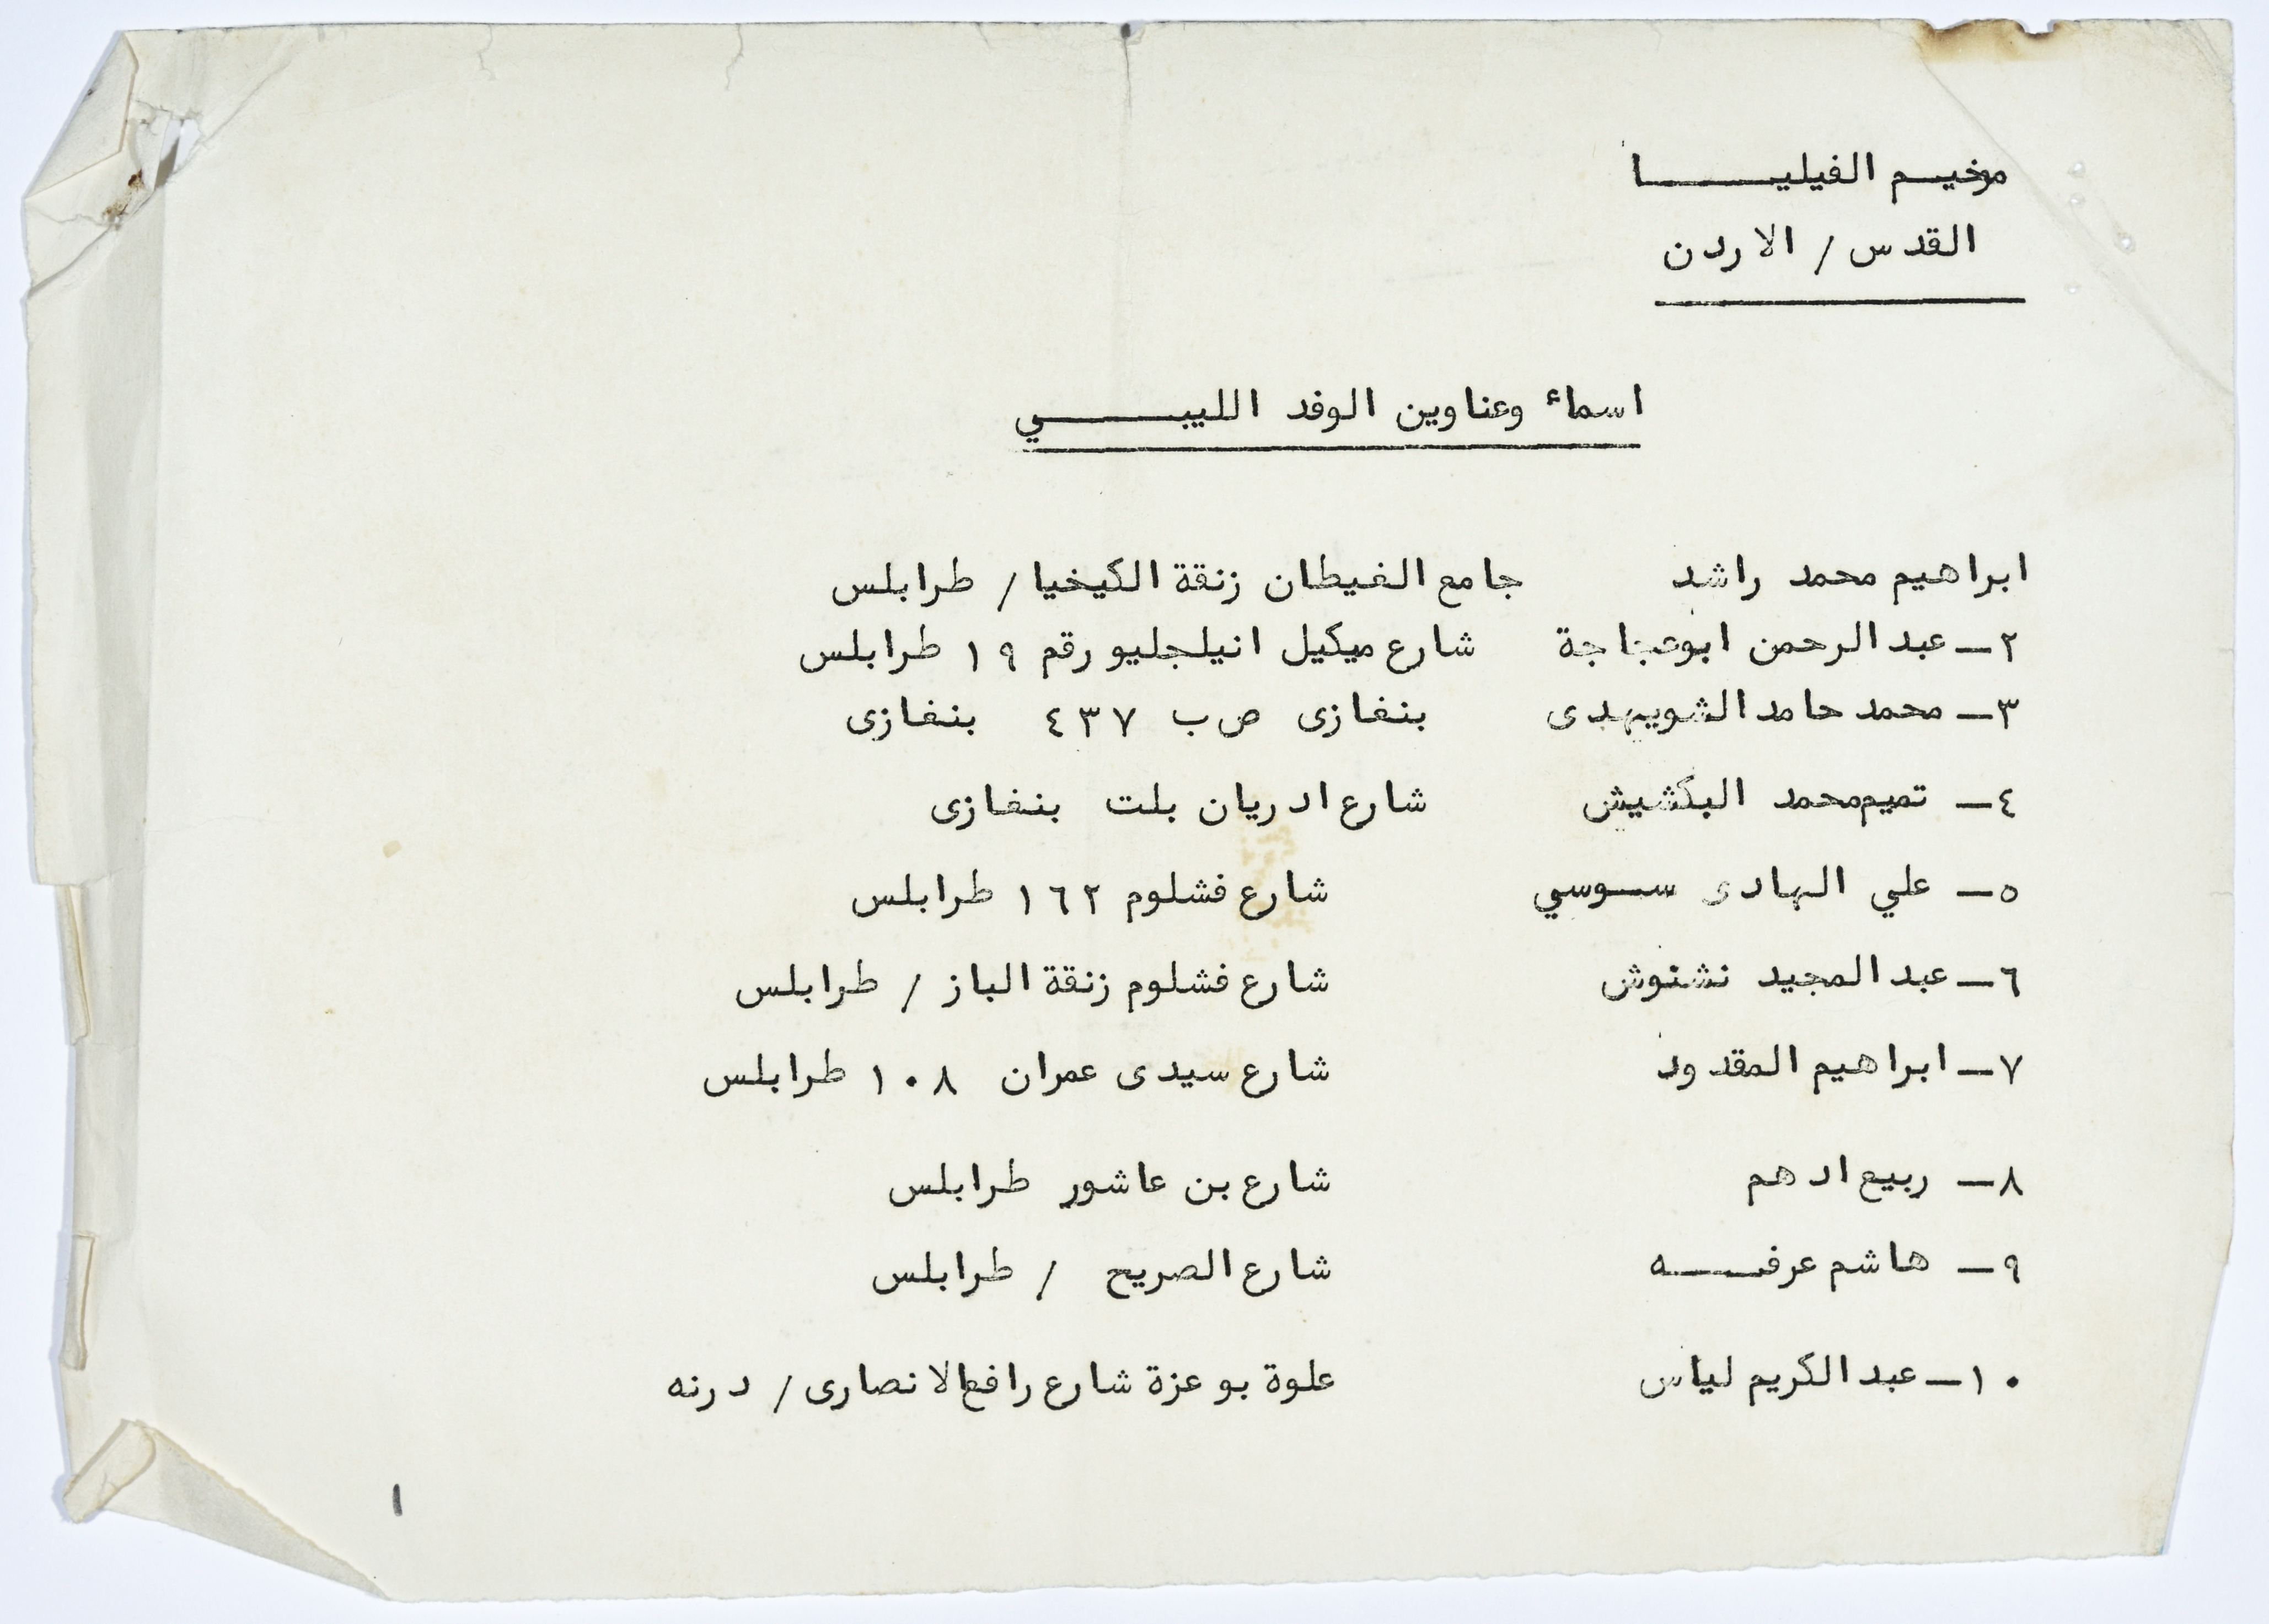 مخيم الفيليا
القدس / الاردن
اسماء وعناوين الوفد الليبي
ابراهيم محمد راشد جامع الغيطان زنقة الكيخيا / طرابلس
٢- عبد الرحمن ابوعجاجة شارع ميكيل انيلجليو رقم ١٩ طرابلس
٣- محمد حامد الشويهدى بنغازى ص ب ٤٣٧ بنغازى
٤- تميم محمد البكشيش شارع ادريان بلت بنغازى
٥- علي الهادى سوسي شارع فشلوم ١٦٢ طرابلس
٦- عبد المجيد نشنوش شارع فشلوم زنقة الباز / طرابلس
٧- ابراهيم المقدود شارع سيدى عمران ١٠٨ طرابلس
٨- ربيع ادهم شارع بن عاشور طرابلس
٩- هاشم عرفه شارع الصريح / طرابلس
١٠- عبد الكريم لياس علوة بو عزة شارع رافع الانصارى / درنه
١